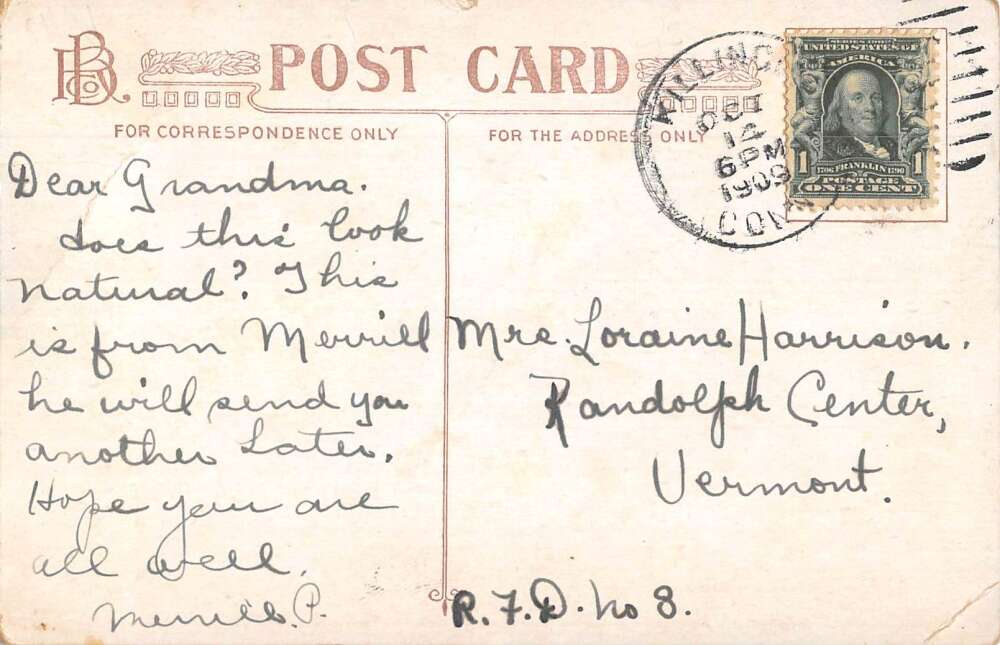 POST CARD
FOR CORRESPONDENCE ONLY
FOR THE ADDRESS ONLY
KILLING
OCT
14
6 PM
1909
CONN
SERIES 1902
UNITED STATES OF
AMERICA
1 1706 FRANKLIN 1790 1
POSTAGE
ONE CENT
Dear Grandma.
does this look
natural? This
is from Merrill
he will send you
another Later.
Hope you are
all well.
Merrill. P.
Mrs. Loraine Harrison.
Randolph Center,
Vermont.
R.F.D. No 8.